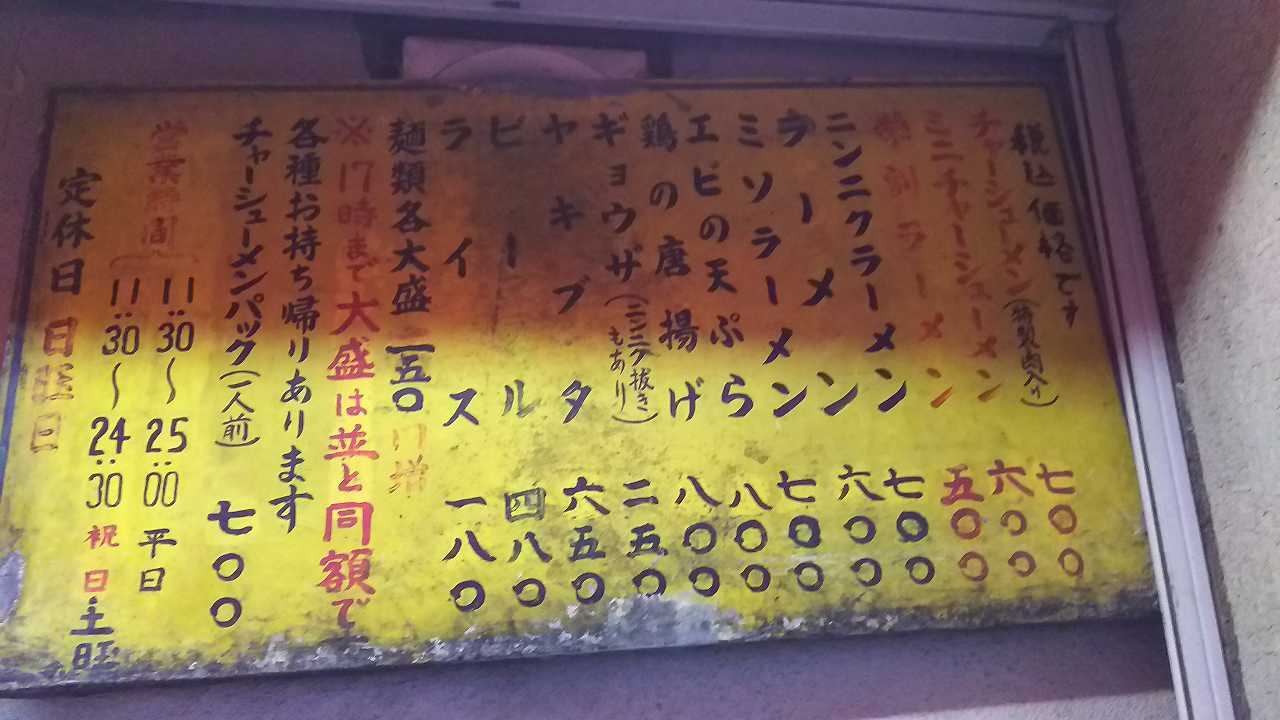 税込価格です
チャーシューメン(特製肉入り) 七〇〇
ミニチャーシューメン 六〇〇
特割ラーメン 五〇〇
ニンニクラーメン 七〇〇
ラーメン 六〇〇
ミソラーメン 七〇〇
エビの天ぷら 八〇〇
鶏の唐揚げ 八〇〇
ギョウザ(ニンニク抜きもあり) 二五〇
ヤキブタ 六五〇
ビール 四八〇
ライス 一八〇
麺類各大盛一五〇円増
※17時まで大盛は並と同額で
各種お持ち帰りあります
チャーシューメンパック(一人前) 七〇〇
営業時間 11:30〜25:00 平日
11:30〜24:30 祝日土曜
定休日 日曜日